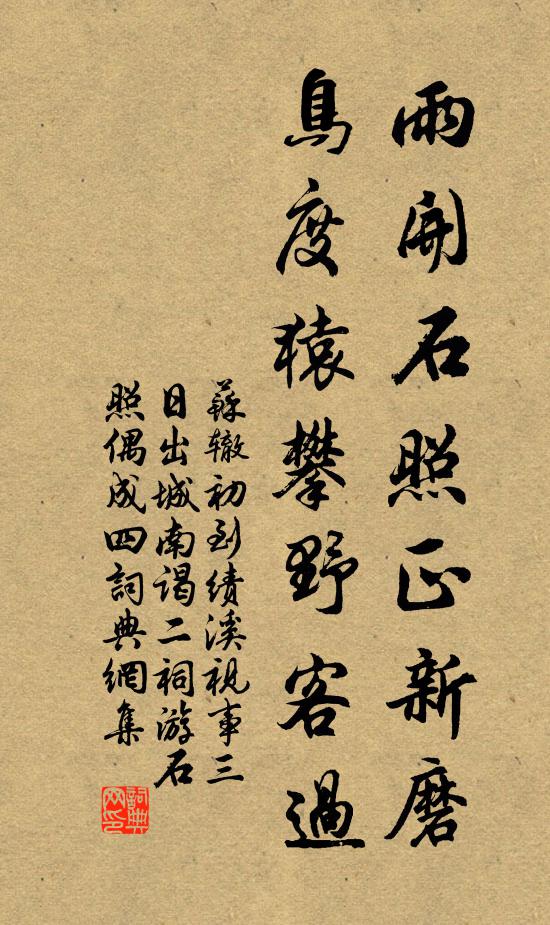 雨開石照正新磨
鳥度猿攀野客過
蘇轍初到績溪視事三
日出城南謁二祠游石
照偶成四詞典網集
詞典网印